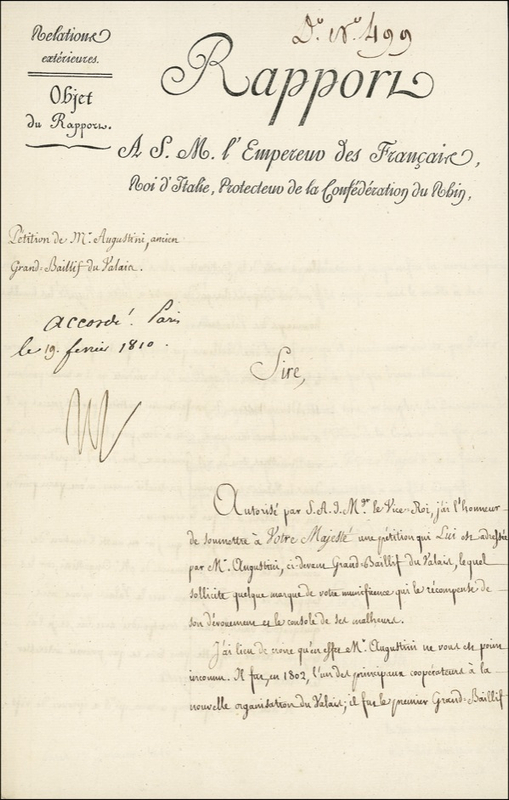 D.° N.° 499
Relations
extérieures.
Objet
du Rapport.
Rapport
A S. M. l'Empereur des Français,
Roi d'Italie, Protecteur de la Confédération du Rhin,
Pétition de M.r Augustini, ancien
Grand-Baillif du Valais.
accordé. Paris
le 19. fevrier 1810.
Sire,
Autorisé par S. A. I. M.gr le Vice-Roi, j'ai l'honneur
de soumettre à Votre Majesté une pétition qui Lui est adressée
par M.r Augustini, ci-devant Grand-Baillif du Valais, lequel
sollicite quelque marque de votre munificence qui le récompense de
son dévouement et le console de ses malheurs.
J'ai lieu de croire qu'en effet M.r Augustini ne vous est point
inconnu. Il fut, en 1802, l'un des principaux coopérateurs à la
nouvelle organisation du Valais; il fut le premier Grand-Baillif